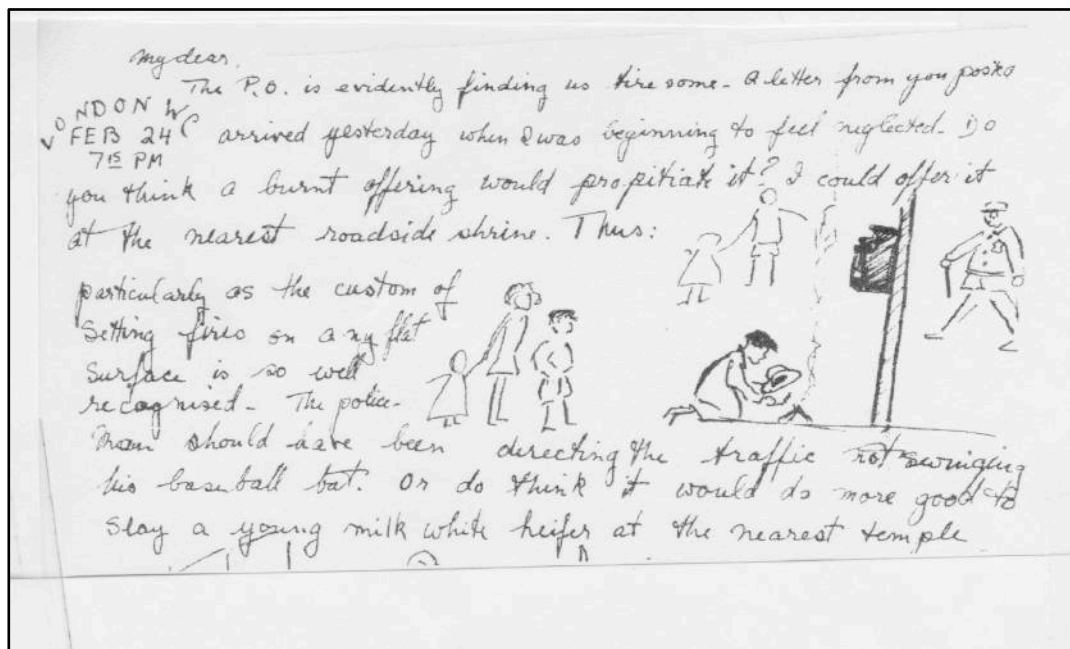 My dear,
The P.O. is evidently finding us tiresome - a letter from you
LONDON W
FEB 24
7 15 PM
arrived yesterday when I was beginning to feel neglected. Do
you think a burnt offering would propitiate it? I could offer it
at the nearest roadside shrine. Thus:
particularly as the custom of
setting fires on any flat
surface is so well
recognised - The police-
man should have been directing the traffic not swinging
his baseball bat. Or do think it would do more good to
slay a young milk white heifer at the nearest temple